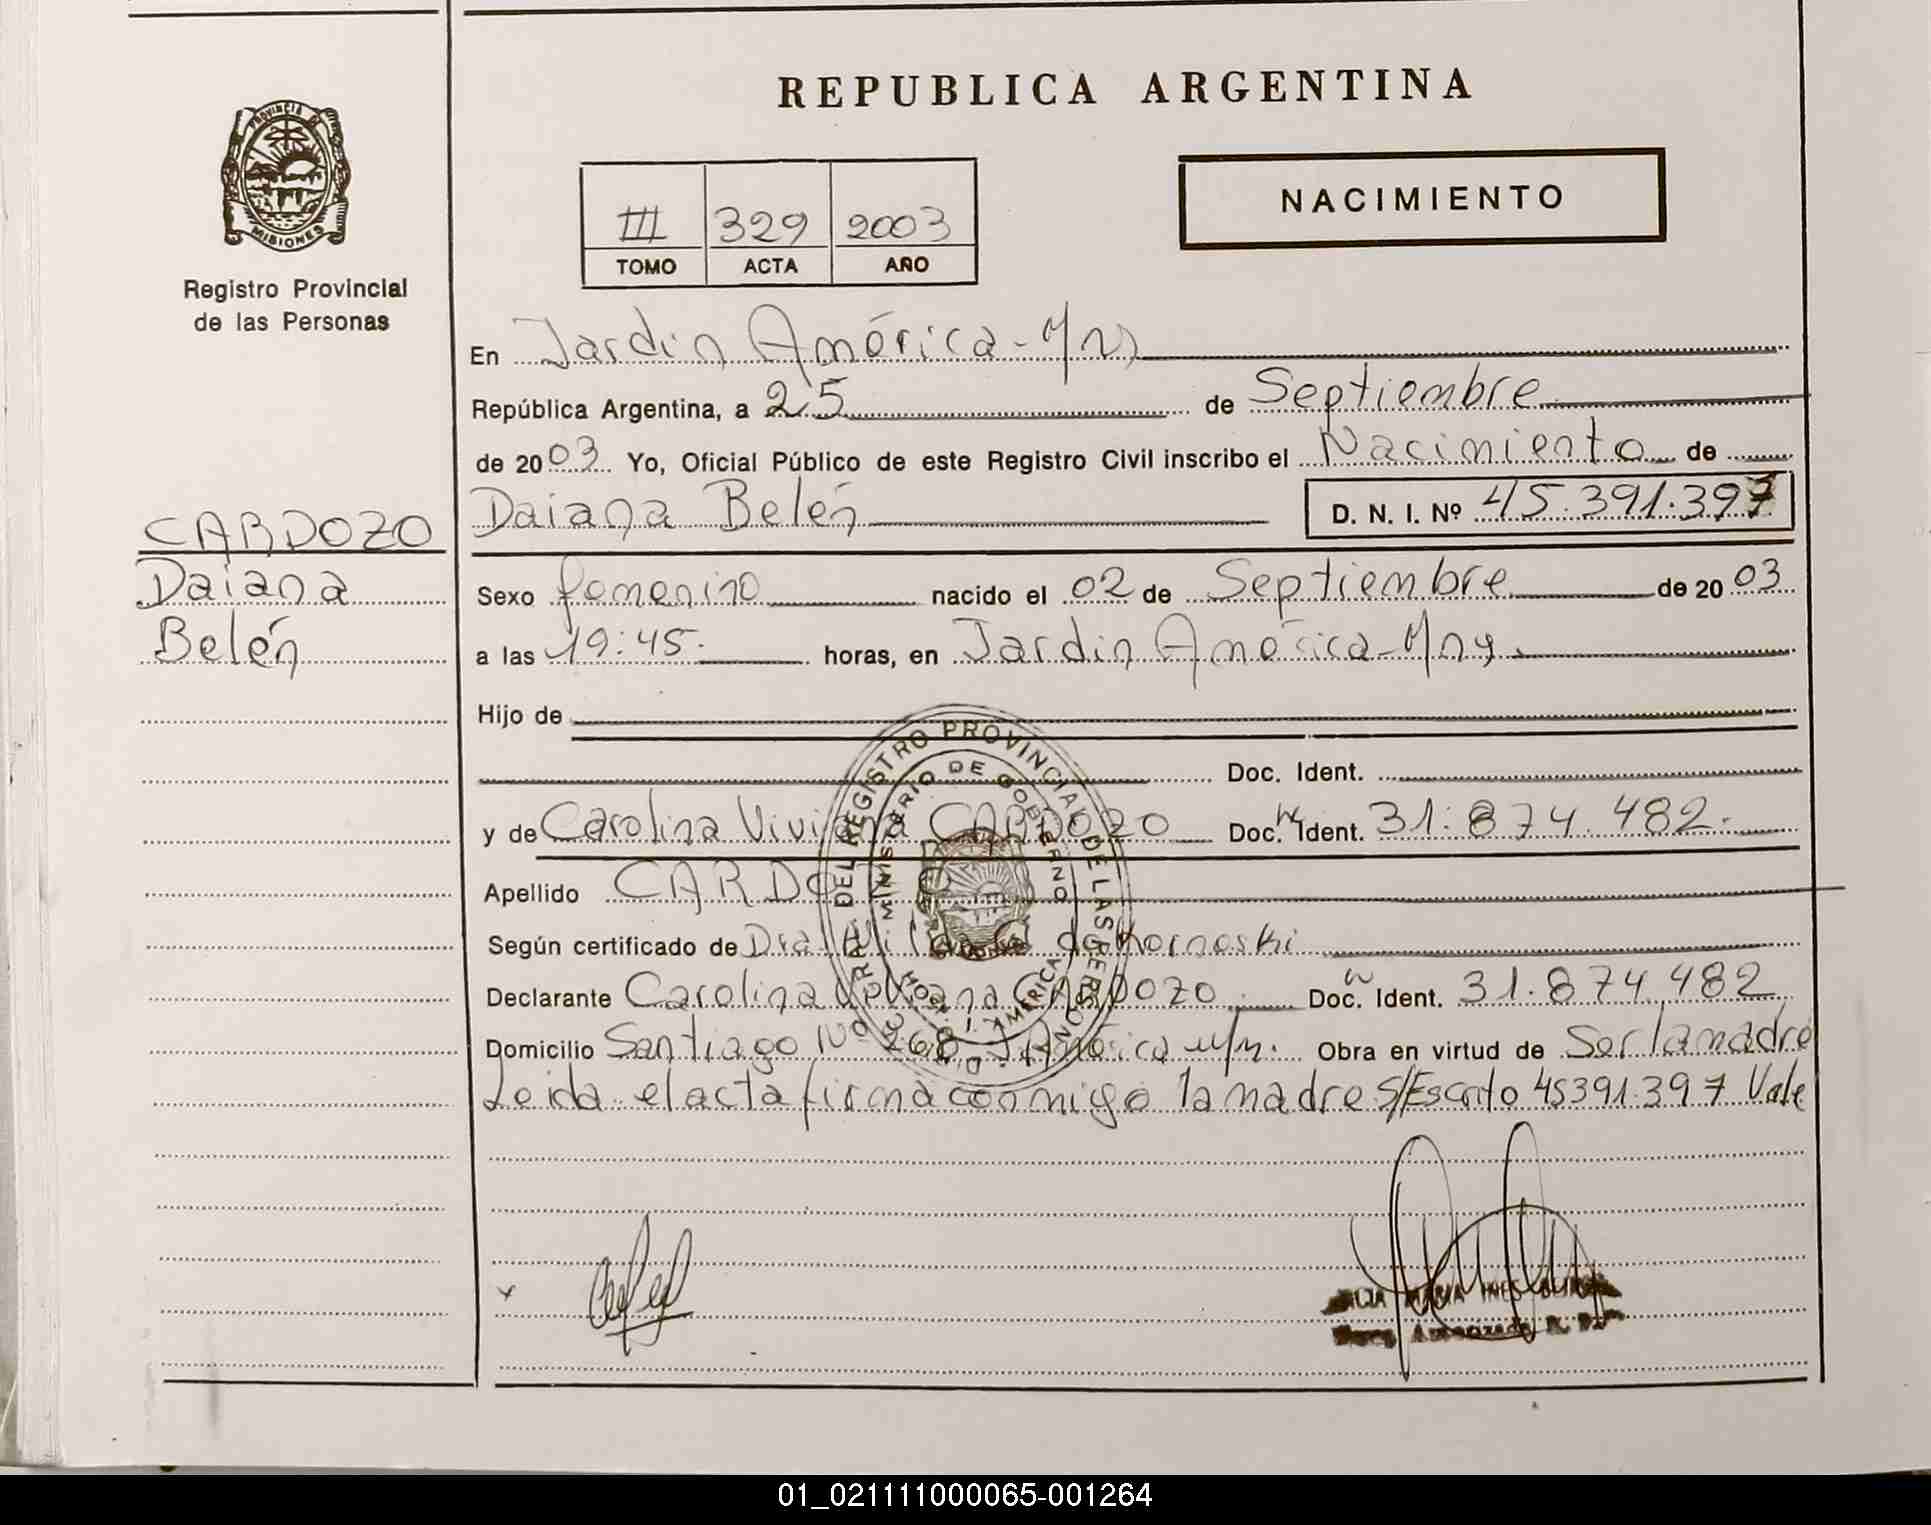 REPUBLICA ARGENTINA
PROVINCIA DE
MISIONES
Registro Provincial
de las Personas
III 329 2003
TOMO ACTA AÑO
NACIMIENTO
En Jardin América - Mns
República Argentina, a 25 de Septiembre
de 2003 Yo, Oficial Público de este Registro Civil inscribo el Nacimiento de
Daiana Belén D. N. I. Nº 45.391.397
CARDOZO
Daiana
Belén
Sexo femenino nacido el 02 de Septiembre de 2003
a las 19:45. horas, en Jardin América - Mns.
Hijo de
Doc. Ident.
y de Carolina Viviana CARDOZO Doc. Ident. 31.874.482.
Apellido CARDOZO
Según certificado de Dra. de Kornoski
Declarante Carolina Viviana CARDOZO Doc. Ident. 31.874.482
Domicilio Santiago Nº 268 J. América Obra en virtud de Ser la madre
Leida el acta firma conmigo la madre S/Escrito 45391.397 Vale
DIRECCION GRAL. DEL REGISTRO PROVINCIAL DE LAS PERSONAS
MINISTERIO DE GOBIERNO
AMERICA
MARIA INES
01_021111000065-001264